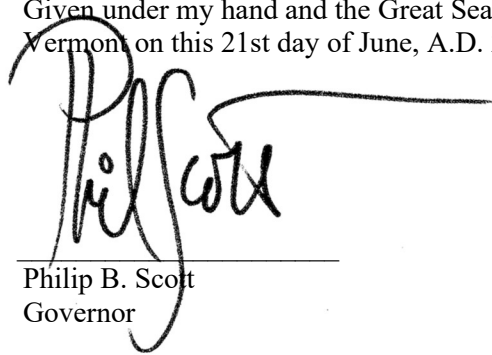 Given under my hand and the Great Sea
Vermont on this 21st day of June, A.D.
Phil Scott
Philip B. Scott
Governor